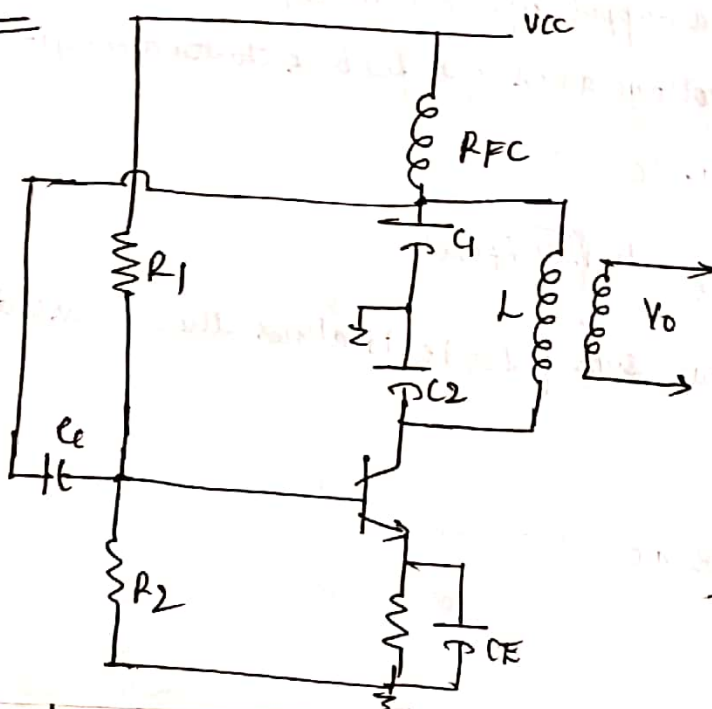 VCC
RFC
C1
R1
L
Vo
C2
Cc
R2
CE